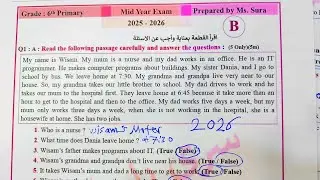 Grade : 6th Primary Mid Year Exam Prepared by Ms. Sura
2025 - 2026
B
اقرأ القطعة بعناية وأجب عن الاسئلة
Q1 : A : Read the following passage carefully and answer the questions : (5 Only)(5m)
My name is Wisam. My mum is a nurse and my dad works in an office. He is an IT
programmer. He makes computer programs about buildings. My sister Dania, and I go to
school by bus. We leave home at 7:30. My grandma and grandpa live very near to our
house. So, my grandpa takes our little brother to school. My dad works to work and he
takes our mum to the hospital first. They leave home at 6:45 because it take more than an
hour to get to the hospital and then to the office. My dad works five days a week, but my
mum only works three days a week, when she is not working in the hospital, she is a
housewife at home. She has two jobs.
1 Who is a nurse ? Wisam's Mater 2026
2 What time does Dania leave home ? 7:30
3 Wisam's father makes programs about IT. (True / False)
4 Wisam's grandma and grandpa don't live near his house. (True / False)
5 It takes Wisam's mum and dad a long time to get to work. (True / False)